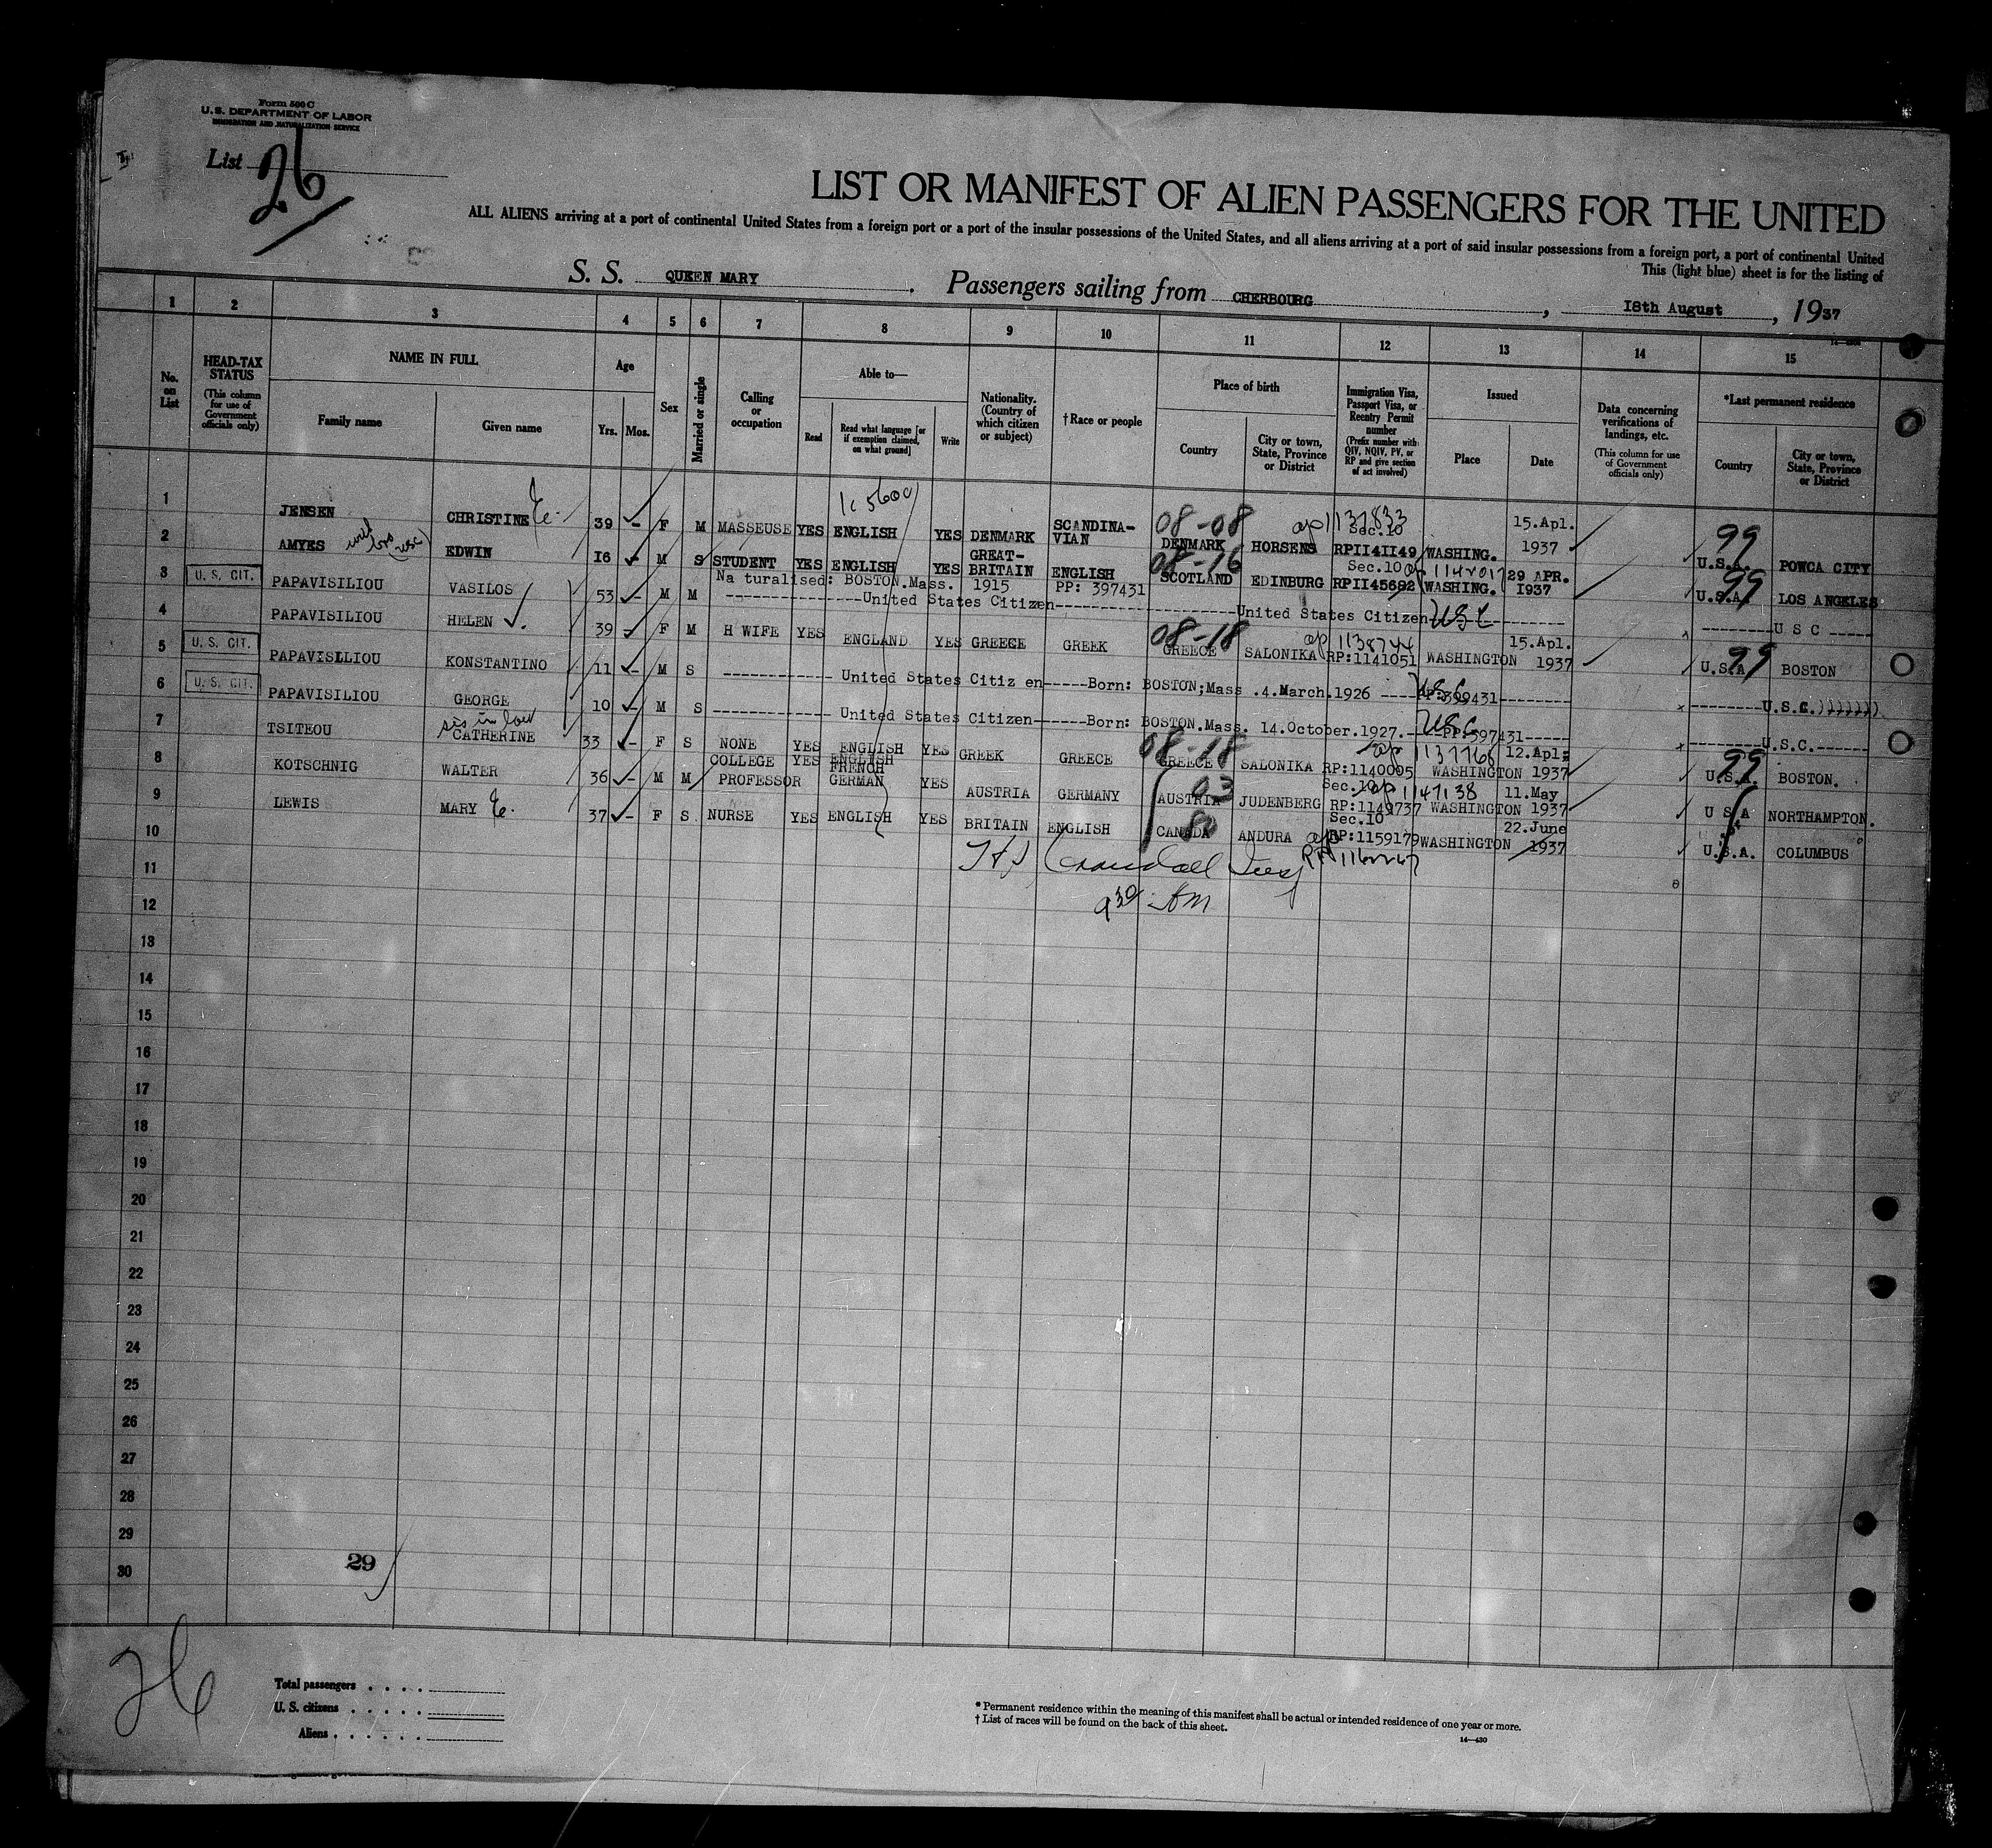 Form 500 C
U. S. DEPARTMENT OF LABOR
IMMIGRATION AND NATURALIZATION SERVICE
List 26
LIST OR MANIFEST OF ALIEN PASSENGERS FOR THE UNITED
ALL ALIENS arriving at a port of continental United States from a foreign port or a port of the insular possessions of the United States, and all aliens arriving at a port of said insular possessions from a foreign port, a port of continental United
This (light blue) sheet is for the listing of
S. S. QUEEN MARY. Passengers sailing from CHERBOURG, 18th August, 1937
1 2 3 4 5 6 7 8 9 10 11 12 13 14 15
No. on List
HEAD-TAX STATUS (This column for use of Government officials only)
NAME IN FULL
Family name
Given name
Age
Yrs. Mos.
Sex
Married or single
Calling or occupation
Able to—
Read
Read what language [or if exemption claimed, on what ground]
Write
Nationality. (Country of which citizen or subject)
† Race or people
Place of birth
Country
City or town, State, Province or District
Immigration Visa, Passport Visa, or Reentry Permit number (Prefix number with QIV, NQIV, PV, or RP and give section of act involved)
Issued
Place
Date
Data concerning verifications of landings, etc. (This column for use of Government officials only)
*Last permanent residence
Country
City or town, State, Province or District
1 JENSEN CHRISTINE 39 - F M MASSEUSE YES ENGLISH YES DENMARK SCANDINA-VIAN 08-08 DENMARK HORSENS 1137833 Sec.10 RPII4II149 WASHING. 15.Apl. 1937 99 U.S.A. POWCA CITY
2 AMYES EDWIN I6 - M S STUDENT YES ENGLISH YES GREAT-BRITAIN ENGLISH 08-16 SCOTLAND EDINBURG Sec.10 RPII45692 WASHING. 29 APR. I937 99 U.S.A. LOS ANGELES
3 U. S. CIT. PAPAVISILIOU VASILOS 53 - M M Na turalised: BOSTON.Mass. 1915 PP: 397431
----United States Citizen----United States Citizen---- USC ----U S C ----
4 PAPAVISILIOU HELEN 39 - F M H WIFE YES ENGLAND YES GREECE GREEK 08-18 GREECE SALONIKA 1138744 RP:1141051 WASHINGTON 15.Apl. 1937 99 U.S.A BOSTON
5 U. S. CIT. PAPAVISLLIOU KONSTANTINO 11 - M S ---- United States Citiz en----Born: BOSTON;Mass .4.March.1926 ----PP:399431---- USC ----U.S.C.))))))).
6 U. S. CIT. PAPAVISILIOU GEORGE 10 - M S ---- United States Citizen----Born: BOSTON.Mass. 14.October.1927.----PP:397431---- USC ----U.S.C.----
7 TSITEOU sis in law CATHERINE 33 - F S NONE YES ENGLISH YES GREEK GREECE 08-18 GREECE SALONIKA RP:1140095 WASHINGTON 12.Apl; 1937 99 U.S.A. BOSTON.
8 KOTSCHNIG WALTER 36 - M M COLLEGE PROFESSOR YES ENGLISH FRENCH GERMAN YES AUSTRIA GERMANY 03 AUSTRIA JUDENBERG Sec.10 1147138 RP:1149737 WASHINGTON 11.May 1937 U S A NORTHAMPTON.
9 LEWIS MARY E. 37 - F S NURSE YES ENGLISH YES BRITAIN ENGLISH CANADA ANDURA Sec.10 RP:1159179 WASHINGTON 22.June 1937 U.S.A. COLUMBUS
10
11
12 9 30 AM
13
14
15
16
17
18
19
20
21
22
23
24
25
26
27
28
29
30 29
26
Total passengers . . . .
U. S. citizens . . . . .
Aliens . . . . . .
* Permanent residence within the meaning of this manifest shall be actual or intended residence of one year or more.
† List of races will be found on the back of this sheet.
14—430